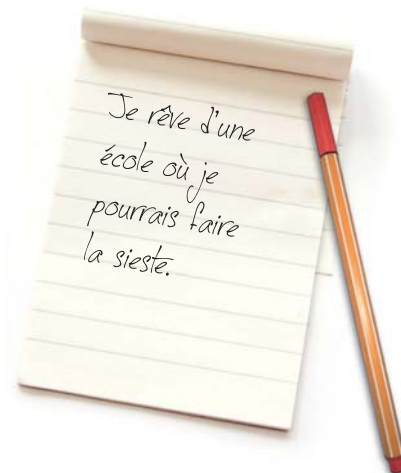 Je rêve d'une
école où je
pourrais faire
la sieste.